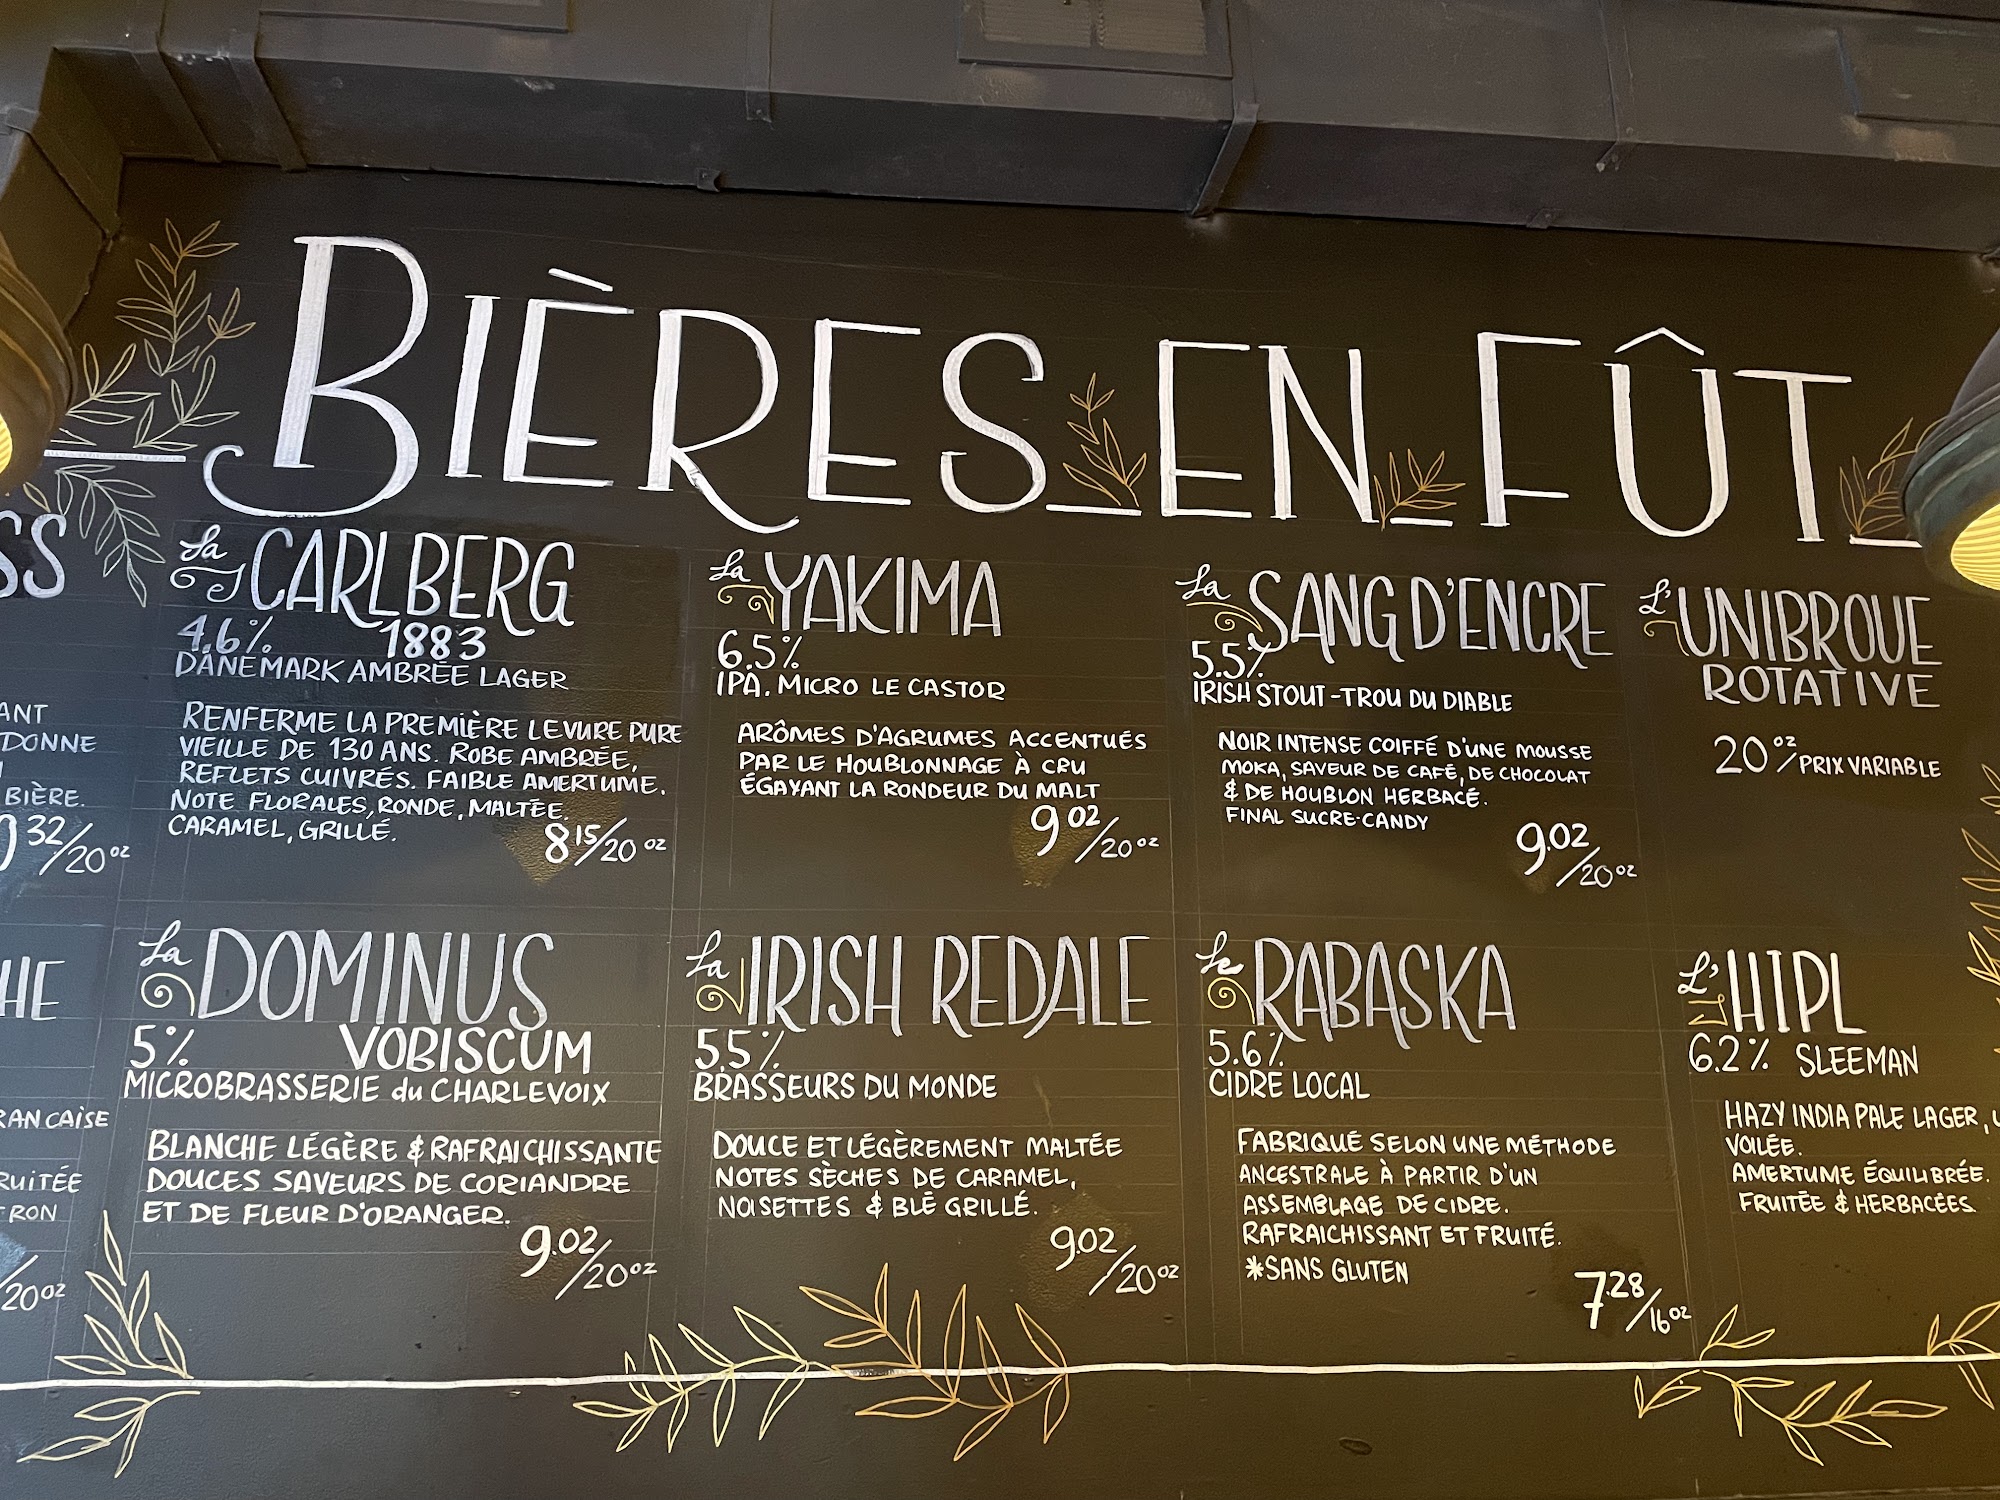 BIÈRES EN FÛT
SS
ANT
DONNE
BIÈRE.
32/20 oz
La CARLBERG
4.6% 1883
DANEMARK AMBRÉE LAGER
RENFERME LA PREMIÈRE LEVURE PURE
VIEILLE DE 130 ANS. ROBE AMBRÉE,
REFLETS CUIVRÉS. FAIBLE AMERTUME.
NOTE FLORALES, RONDE, MALTÉE.
CARAMEL, GRILLÉ.
8 15/20 oz
La YAKIMA
6.5%
IPA. MICRO LE CASTOR
ARÔMES D'AGRUMES ACCENTUÉS
PAR LE HOUBLONNAGE À CRU
ÉGAYANT LA RONDEUR DU MALT
9 02/20 oz
La SANG D'ENCRE
5.5%
IRISH STOUT - TROU DU DIABLE
NOIR INTENSE COIFFÉ D'UNE MOUSSE
MOKA, SAVEUR DE CAFÉ, DE CHOCOLAT
& DE HOUBLON HERBACÉ.
FINAL SUCRE-CANDY
9.02/20 oz
L'UNIBROUE
ROTATIVE
20 oz/PRIX VARIABLE
HE
RANCAISE
RUITÉE
TRON
/20 oz
La DOMINUS
5% VOBISCUM
MICROBRASSERIE du CHARLEVOIX
BLANCHE LÉGÈRE & RAFRAICHISSANTE
DOUCES SAVEURS DE CORIANDRE
ET DE FLEUR D'ORANGER.
9.02/20 oz
La IRISH REDALE
5.5%
BRASSEURS DU MONDE
DOUCE ET LÉGÈREMENT MALTÉE
NOTES SÈCHES DE CARAMEL,
NOISETTES & BLÉ GRILLÉ.
9.02/20 oz
Le RABASKA
5.6%
CIDRE LOCAL
FABRIQUÉ SELON UNE MÉTHODE
ANCESTRALE À PARTIR D'UN
ASSEMBLAGE DE CIDRE.
RAFRAICHISSANT ET FRUITÉ.
*SANS GLUTEN
7.28/16 oz
L'HIPL
6.2% SLEEMAN
HAZY INDIA PALE LAGER,
VOILÉE.
AMERTUME ÉQUILIBRÉE.
FRUITÉE & HERBACÉES.